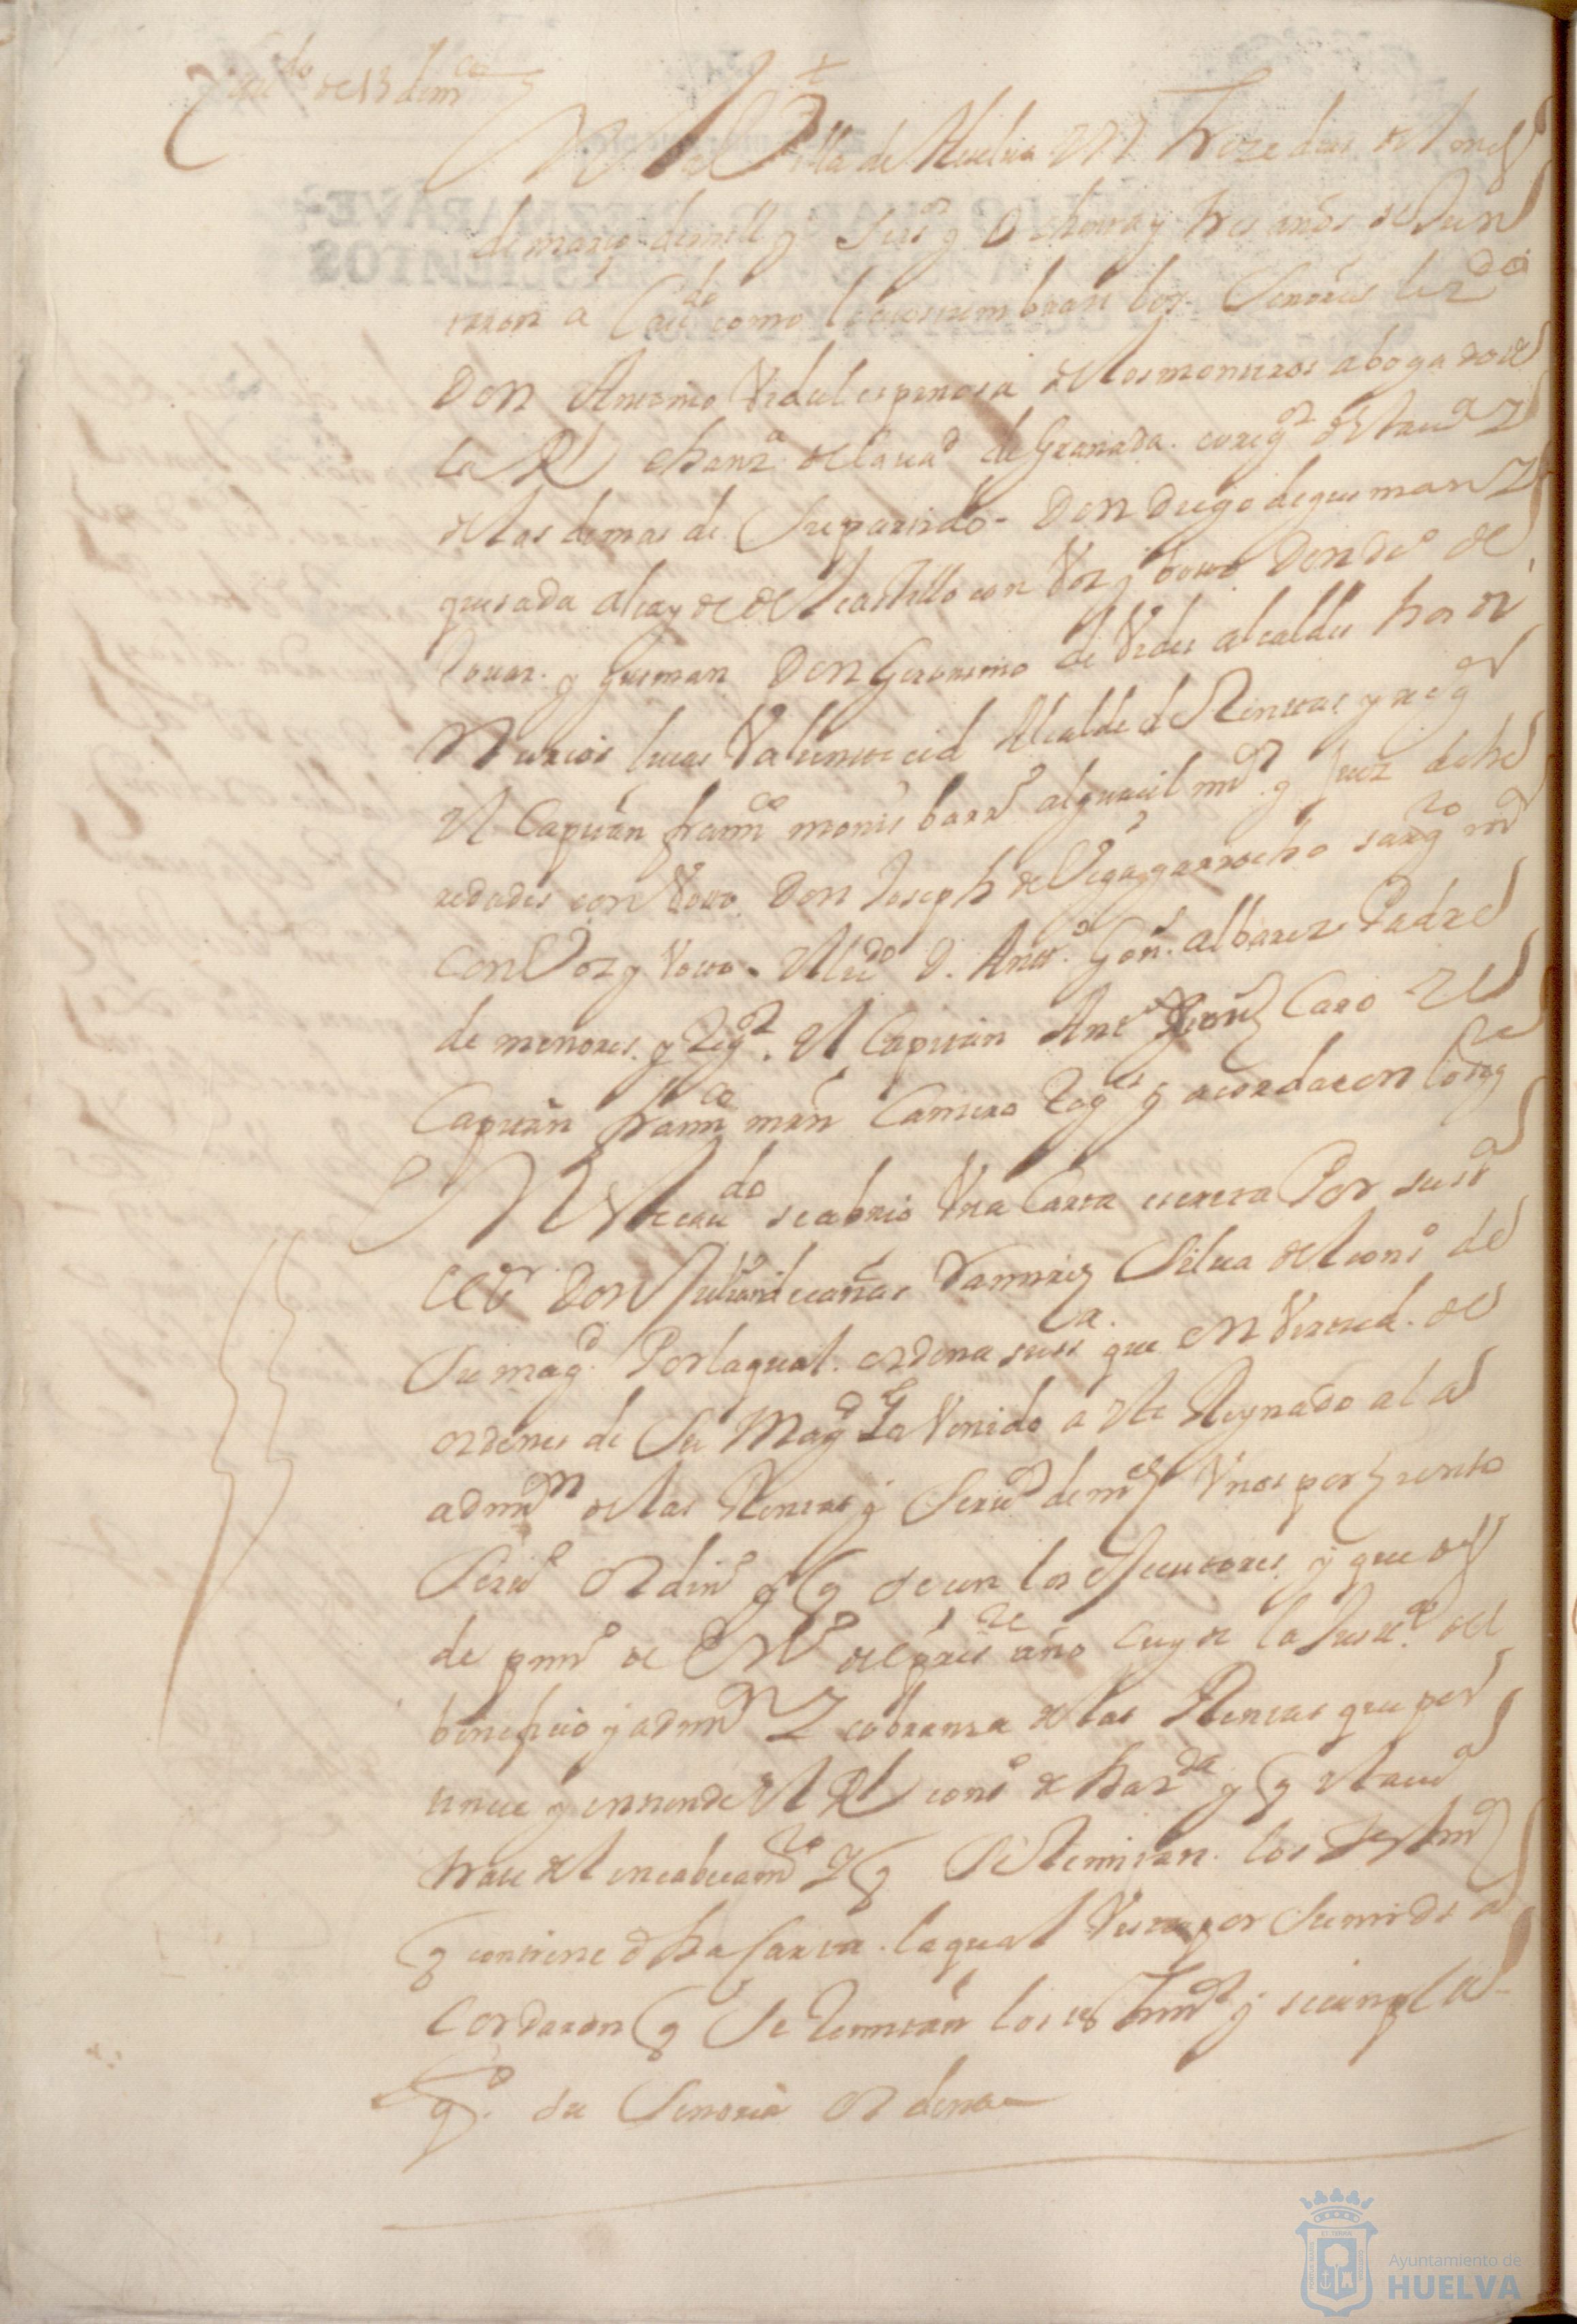 Cau.do de 13 de m.ço
En la Villa de Huelba en Treze dias del mes
de março de mill y seis.os y Ochenta y tres años se Jun
taron a Cau.do como lo acostumbran los Señores liz.do
Don Antonio Vidal espinosa de los monteros abogado de
la Rl chanz.a de la ciu.d de Granada coreg.or desta u.a y
de las demas de Su partido - Don Diego de gusman y
quesada alcayde del castillo con Voz y voto Don de
touar y Gusman Don Geronimo de Vides alcaldes hor
lucas Valiente cid Alcalde de Rentas y reg.or
el Capitan fran.co monis alguacil m.or y Juez de he
redades con Voto Don Joseph de Vega garrocho sarg.to m.or
con Voz y Voto - el liz.do D. Ant.o Gon.s albares Padre
de menores y Reg.or el Capitan Ant.o Caro el
Capitan fran.co mrn Camero Reg.es y acordaron lo sig.te
En este cau.do se abrio Una Carta escrita Por su s.a
el s.r Don Julian de cañas Ramires Silua del cons.o de
Su mag.d Por la qual ordena su s.a que en Virtud de
ordenes de Su Mag.d ha Venido a este Reynado a la
admin.on de las Rentas y Seru.o de m.es Unos por ziento
Seru.o ordin.o y q sean los executores y que des
de prim.o de En.o del pres.te año cuyde la Just.a del
beneficio y admin.on y cobransa de las Rentas que per
tenece y entiende el Rl cons.o de haz.da y q esta u.a
trate del encabezam.to y q Se Remitan los testim.os
q contiene dha Carta la qual Vista por Su mrds a
Cordaron q Se Remitan los testim.os y se cumpla
q.o su Senoria ordena
Ayuntamiento de
HUELVA